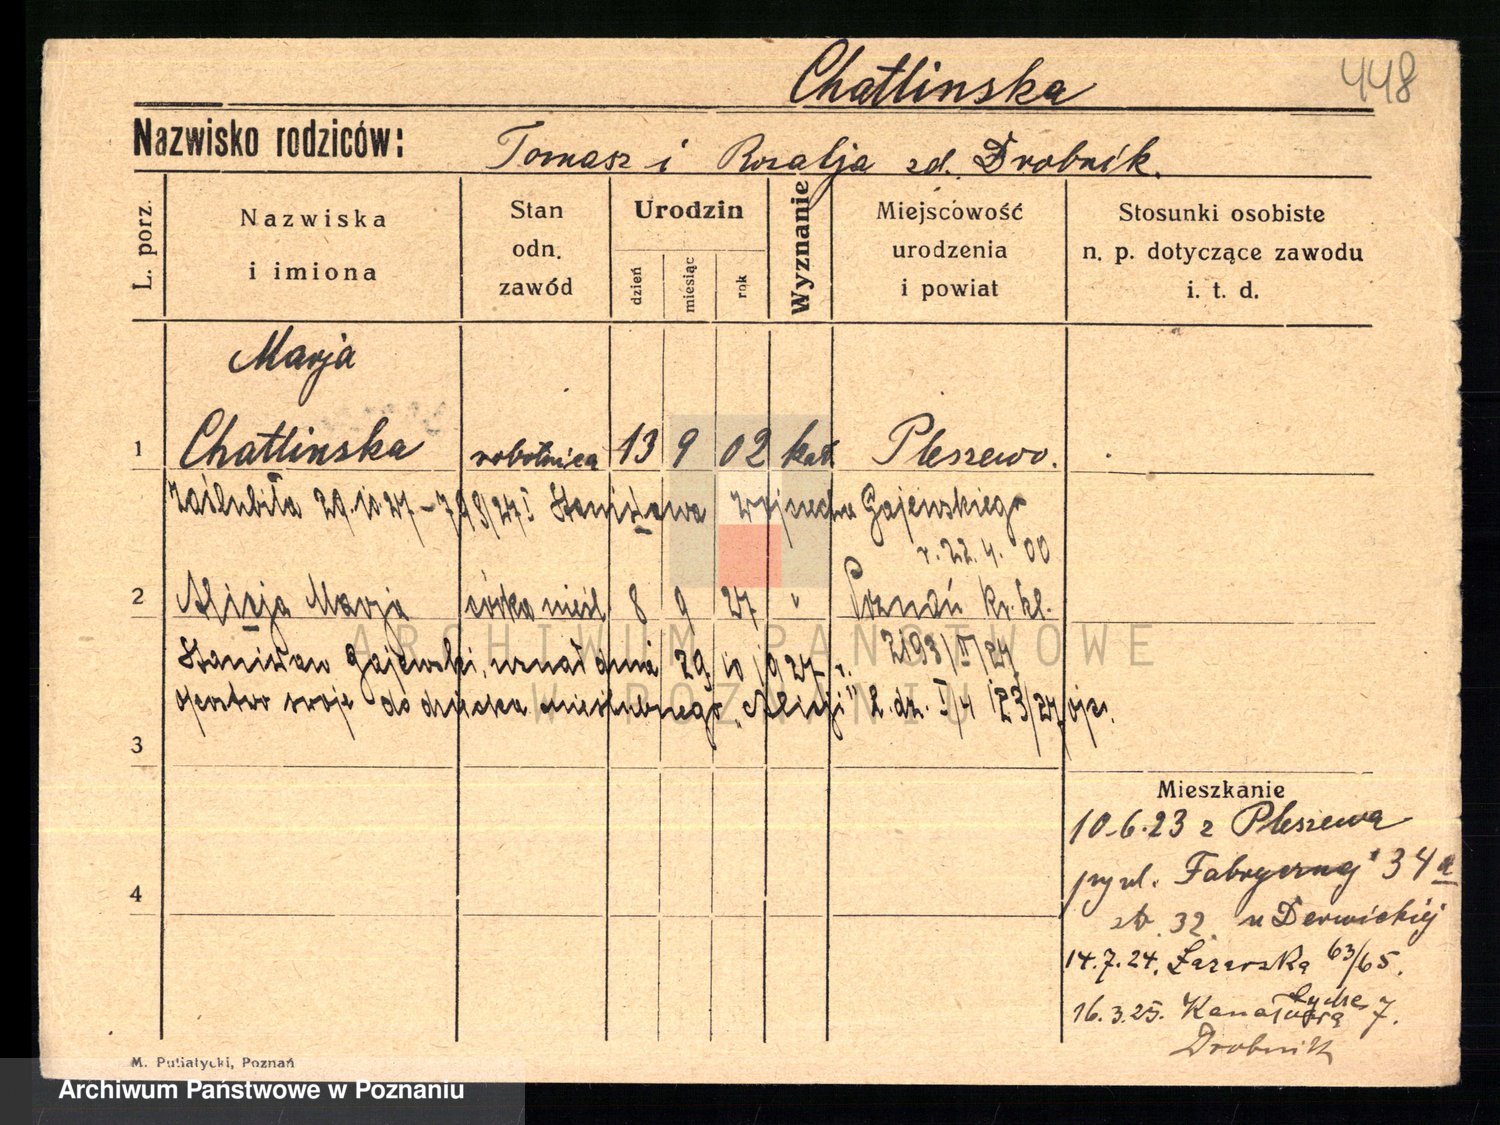 448
Chatlinska
Nazwisko rodziców: Tomasz i Rozalja zd. Drobnik.
L. porz.
Nazwiska i imiona
Stan odn. zawód
Urodzin
dzień
miesiąc
rok
Wyznanie
Miejscowość urodzenia i powiat
Stosunki osobiste n. p. dotyczące zawodu i. t. d.
Marja
1 Chatlinska robotnica 13 9 02 kat. Pleszewo.
Zaślubiła 29.10.27 - 798/27 I Stanisława Wojciecha Gajewskiego
r. 22.4. 00
2 Alicja Marja córka nieśl 8 9 27 " Poznań kr. kl.
2193/II/27
Stanisław Gajewski, uznał dnia 29 10 1927 r.
ojcostwo swoje do dziecka nieślubnego "Alicji" L. dz. I/4 123/27
3
4
Mieszkanie
10.6.23 z Pleszewa
przy ul. Fabrycznej 34a
32. u Derwickiej
14.7.24. Łazarska 63/65.
16.3.25. Kanałowa 7.
Drobnik
M. Putiatycki, Poznań
ARCHIWUM PAŃSTWOWE
W POZNANIU
Archiwum Państwowe w Poznaniu